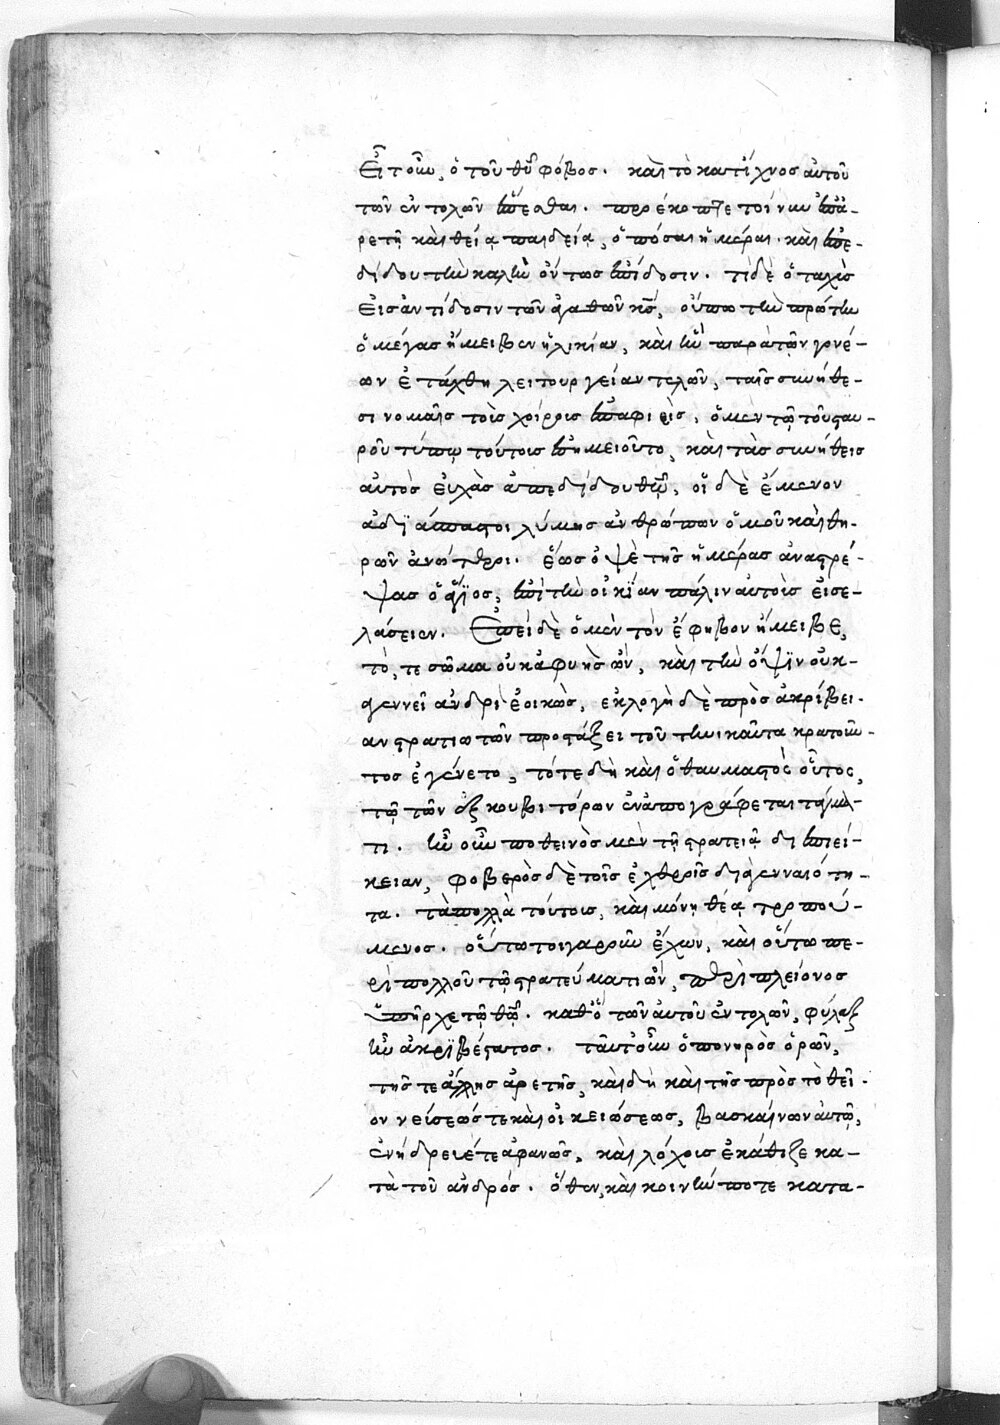 εἶτ οὖν, ὁ τοῦ θυ φόβος. καὶ τὸ κατίχνος αὐτοῦ
τῶν ἐντολῶν ἕπεσθαι. προέκοπτε τοίνυν ἐπ' ἀ-
ρετῇ καὶ θείᾳ παιδείᾳ, ὁπόσαι ἡμέραι. καὶ ἐπε-
δίδου τὴν καλὴν ὄντως ἐπίδοσιν. τί δὲ ὁ ταχὺς
εἰς ἀντίδοσιν τῶν ἀγαθῶν κς, οὔπω τὴν πρώτην
ὁ μέγας ἤμειβεν ἡλικίαν, καὶ ἣν παρὰ τῶν γονέ-
ων ἐτάχθη λειτουργίαν τελῶν, ταῖς συνήθε-
σι νομαῖς τοὺς χοίρους ἐπαφιεὶς, ὁ μὲν τῷ τοῦ σταυ-
ροῦ τύπῳ τούτους ἐσημειοῦτο, καὶ τὰς συνήθεις
αὐτὸς εὐχὰς ἀπεδίδου θῶ, οἱ δὲ ἔμενον
ἀδιάσπαστοι λύμης ἀνθρώπων ὁμοῦ καὶ θη-
ρῶν ἀνώτεροι. ἕως ὀψὲ τῆς ἡμέρας ἀναστρέ-
ψας ὁ ἅγιος, ἐπὶ τὴν οἰκίαν πάλιν αὐτοὺς εἰσε-
λάσειεν. Ἐπεὶ δὲ ὁ μὲν τὸν ἔφηβον ἤμειβε,
τό, τε σῶμα οὐκ ἀφυὴς ὢν, καὶ τὴν ὄψιν οὐκ
ἀγεννεῖ ἀνδρὶ ἐοικὼς, ἐκλογὴ δὲ πρὸς ἀκρίβει-
αν στρατιωτῶν προστάξει τοῦ τηνικαῦτα κρατοῦν-
τος ἐγένετο, τότε δὴ καὶ ὁ θαυμαστὸς οὗτος,
τῷ τῶν ἐξκουβιτόρων ἐναπογράφεται τάγμα-
τι. ἦν οὖν ποθεινὸς μὲν τῇ στρατειᾷ δι' ἐπιεί-
κειαν, φοβερὸς δὲ τοῖς ἐχθροῖς διὰ γενναιότη-
τα. τὰ πολλὰ τούτοις, καὶ μόνῃ θέᾳ τρεπού-
μενος. οὕτω τοιγαροῦν ἔχων, καὶ οὕτω πε-
ρὶ πολλοῦ τῷ στρατεύματι ὢν, περὶ πλείονος
ὑπῆρχε τῷ θῶ. καθ' ὃ τῶν αὐτοῦ ἐντολῶν, φύλαξ
ἦν ἀκριβέστατος. ταῦτ' οὖν ὁ πονηρὸς ὁρῶν,
τῆς τε ἄλλης ἀρετῆς, καὶ δὴ καὶ τῆς πρὸς τὸ θεῖ-
ον νεύσεώς τε καὶ οἰκειώσεως, βασκαίνων αὐτῷ,
ἐνήδρευέ τε ἀφανῶς, καὶ λόχους ἐκάθιζε κα-
τὰ τοῦ ἀνδρός. ὅθεν, καὶ κοινήν ποτε κατα-